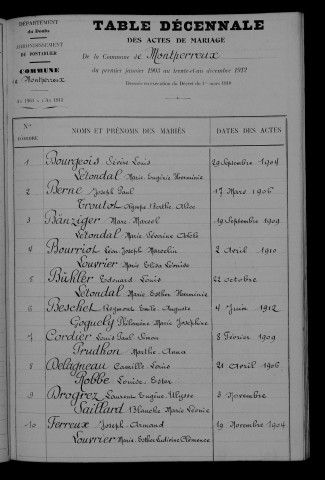 DÉPARTEMENT
du Doubs
ARRONDISSEMENT
DE PONTARLIER
COMMUNE
de Montperreux
TABLE DÉCENNALE
DES ACTES DE MARIAGE
De la Commune de Montperreux
du premier janvier 1903 au trente-et-un décembre 1912
Dressée en exécution du Décret du 1er mars
Nos D'ORDRE NOMS ET PRÉNOMS DES MARIÉS DATES DES ACTES
1 Bourgeois Louis 29 Septembre 1904
Létondal Marie Eugénie Herminie
2 Berne Joseph Paul 17 Mars 1906
Troutot Olympe Marthe Alice
3 Bänziger Marc Marcel 19 Septembre 1909
Létondal Marie Séverine
4 Bourriot Léon Joseph Marcelin 2 Avril 1910
Louvrier Marie Elisa
5 Bühler Edouard Louis 22 octobre
Létondal Marie Esther Herminie
6 Beschet Raymond Emile Auguste 4 Juin 1912
Goguely Philomène Marie Joséphine
7 Cordier Louis Paul Simon 8 Février 1909
Prudhon Marthe Anna
8 Delagneau Camille Louis 21 Avril 1906
Robbe Louise Ester
9 Drogrez Laurent Eugène Ulysse 3 Novembre
Saillard Blanche Marie Léonie
10 Ferreux Joseph Armand 19 Novembre 1904
Louvrier Marie Esther Ludivine Clémence